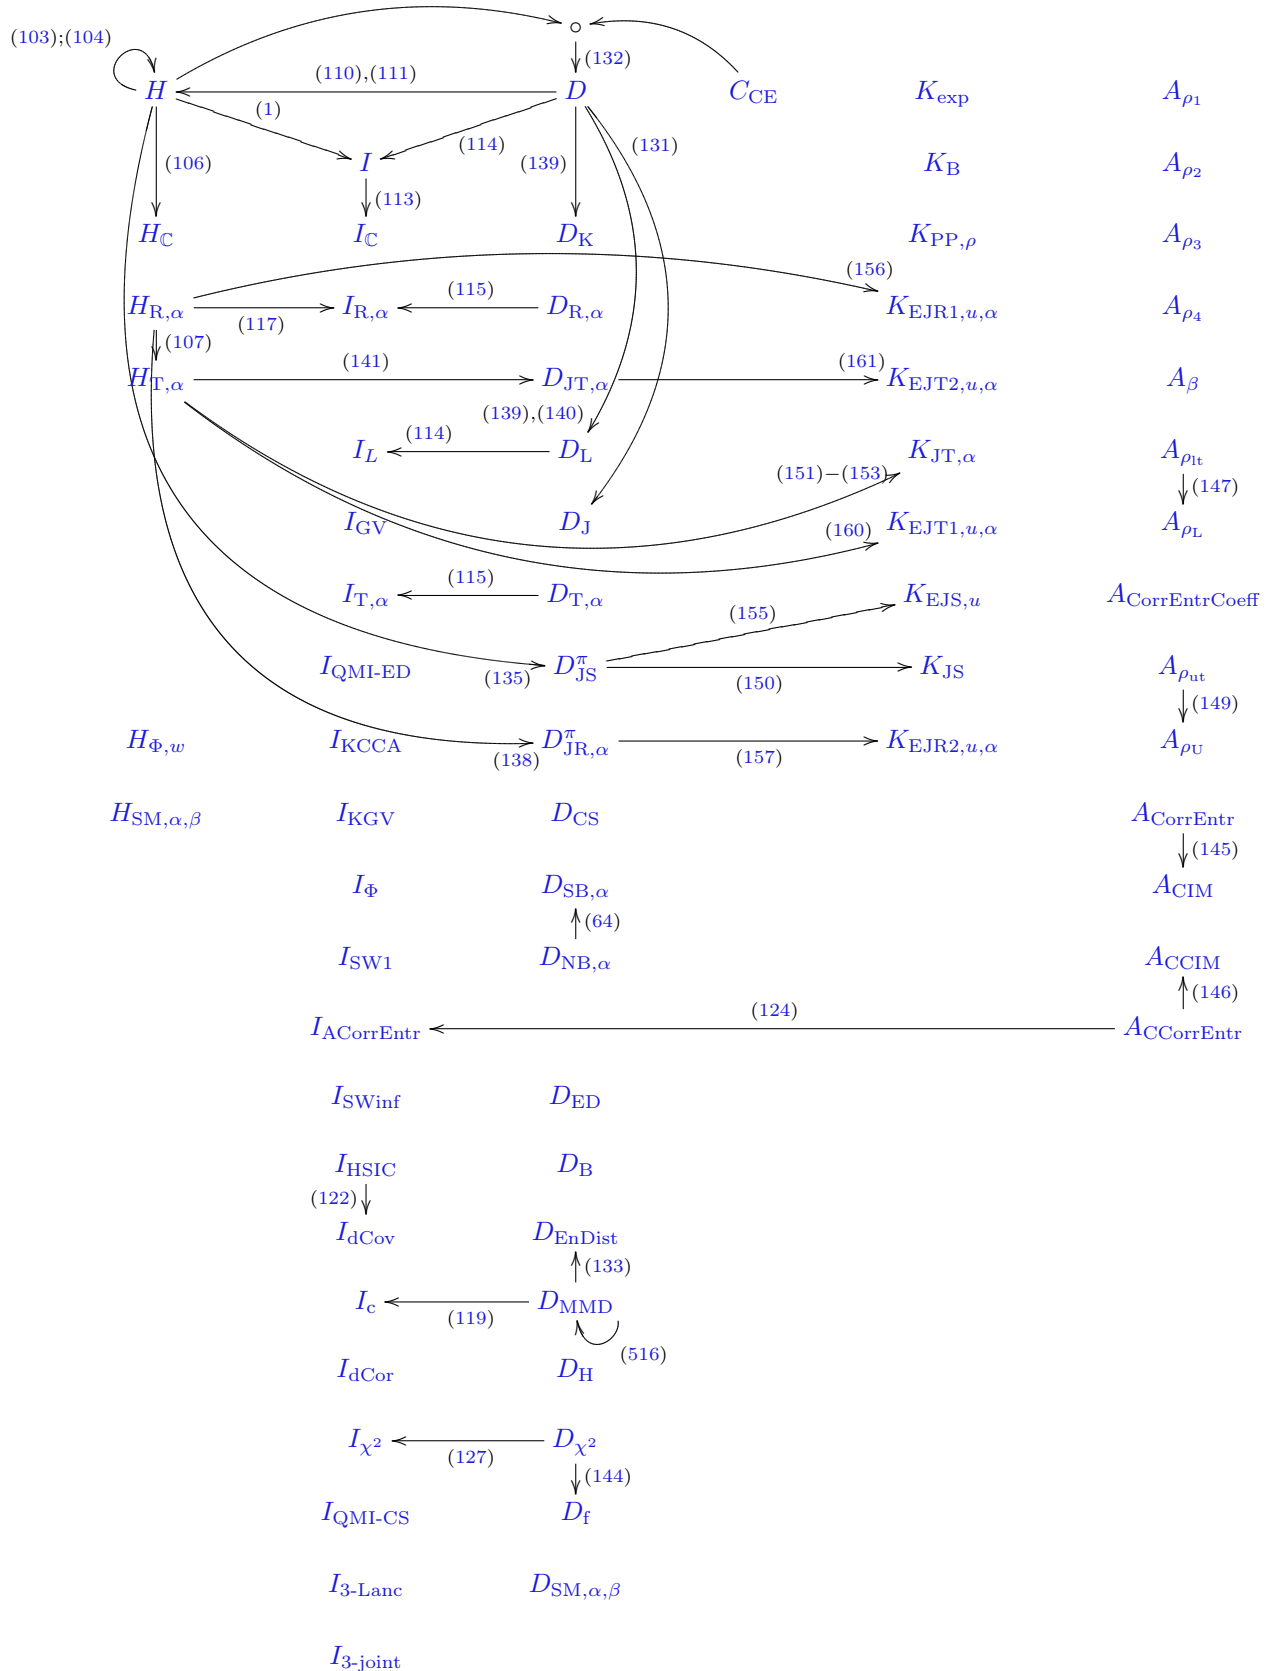 (103);(104)
∘
(132)
(110),(111)
H D C_CE K_exp A_ρ₁
(1) (114) (131)
(106) I (139) K_B A_ρ₂
(113)
H_ℂ I_ℂ D_K K_PP,ρ A_ρ₃
(156)
(115)
H_R,α I_R,α D_R,α K_EJR1,u,α A_ρ₄
(117)
(107)
(141) (161)
H_T,α D_JT,α K_EJT2,u,α A_β
(139),(140)
(114)
I_L D_L K_JT,α A_ρ_lt
(151)−(153) (147)
I_GV D_J (160) K_EJT1,u,α A_ρ_L
(115)
I_T,α D_T,α K_EJS,u A_CorrEntrCoeff
(155)
I_QMI-ED (135) D^π_JS K_JS A_ρ_ut
(150)
(149)
H_Φ,w I_KCCA D^π_JR,α K_EJR2,u,α A_ρ_U
(138) (157)
H_SM,α,β I_KGV D_CS A_CorrEntr
(145)
I_Φ D_SB,α A_CIM
(64)
I_SW1 D_NB,α A_CCIM
(146)
(124)
I_ACorrEntr A_CCorrEntr
I_SWinf D_ED
I_HSIC D_B
(122)
I_dCov D_EnDist
(133)
I_c D_MMD
(119)
(516)
I_dCor D_H
I_χ² D_χ²
(127)
(144)
I_QMI-CS D_f
I_3-Lanc D_SM,α,β
I_3-joint